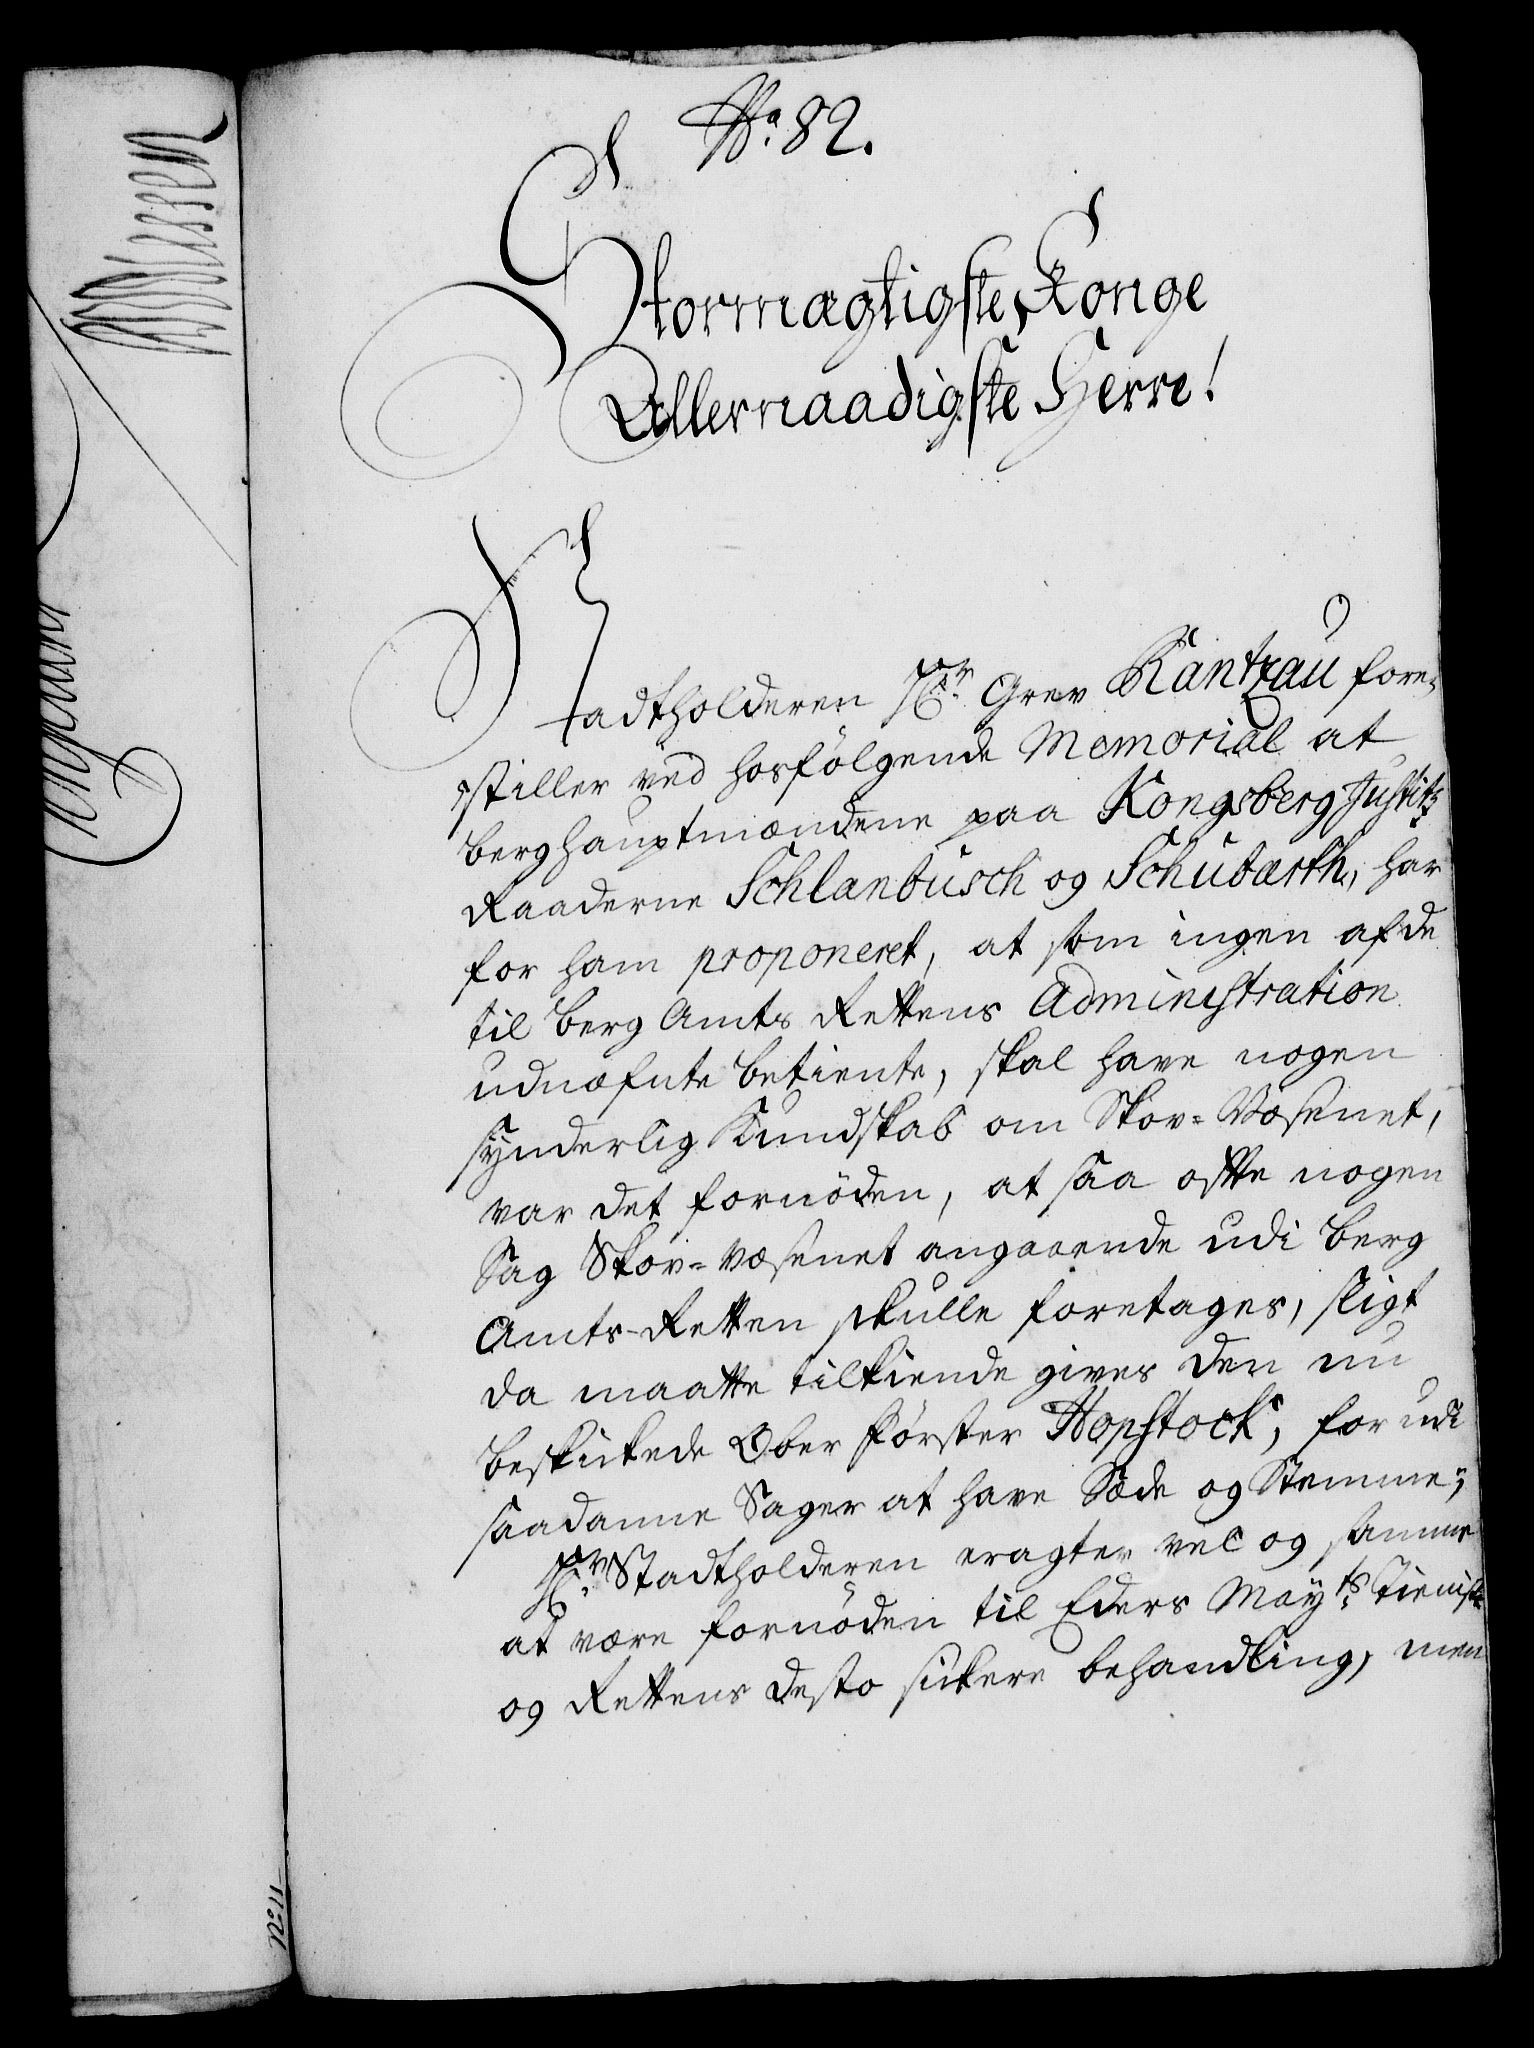 No. 82.
Stormægtigste Konge
Allernaadigste Herre!
Stadtholderen Hr. Grev Rantzau fore-
stiller ved hosfölgende Memorial at
berghauptmændene paa Kongsberg Justitz
Raaderne Schlanbusch og Schubarth, har
for ham proponeret, at som ingen af de
til berg Amts Rettens Administration
udnæfnte betiente, skal have nogen
synderlig Kundskab om Skov-Væsenet,
var det fornöden, at saa ofte nogen
Sag Skov-væsenet angaaende udi berg
Amts-Retten skulle foretages, sligt
da maatte tilkiende gives den nu
beskikede Ober förster Hopstock, for udi
saadanne Sager at have Sæde og Stemme;
Hr. Stadtholderen eragter vel og samme
at være fornöden til Eders Mayts. Tieniste
og Rettens desto sikere behandling, men